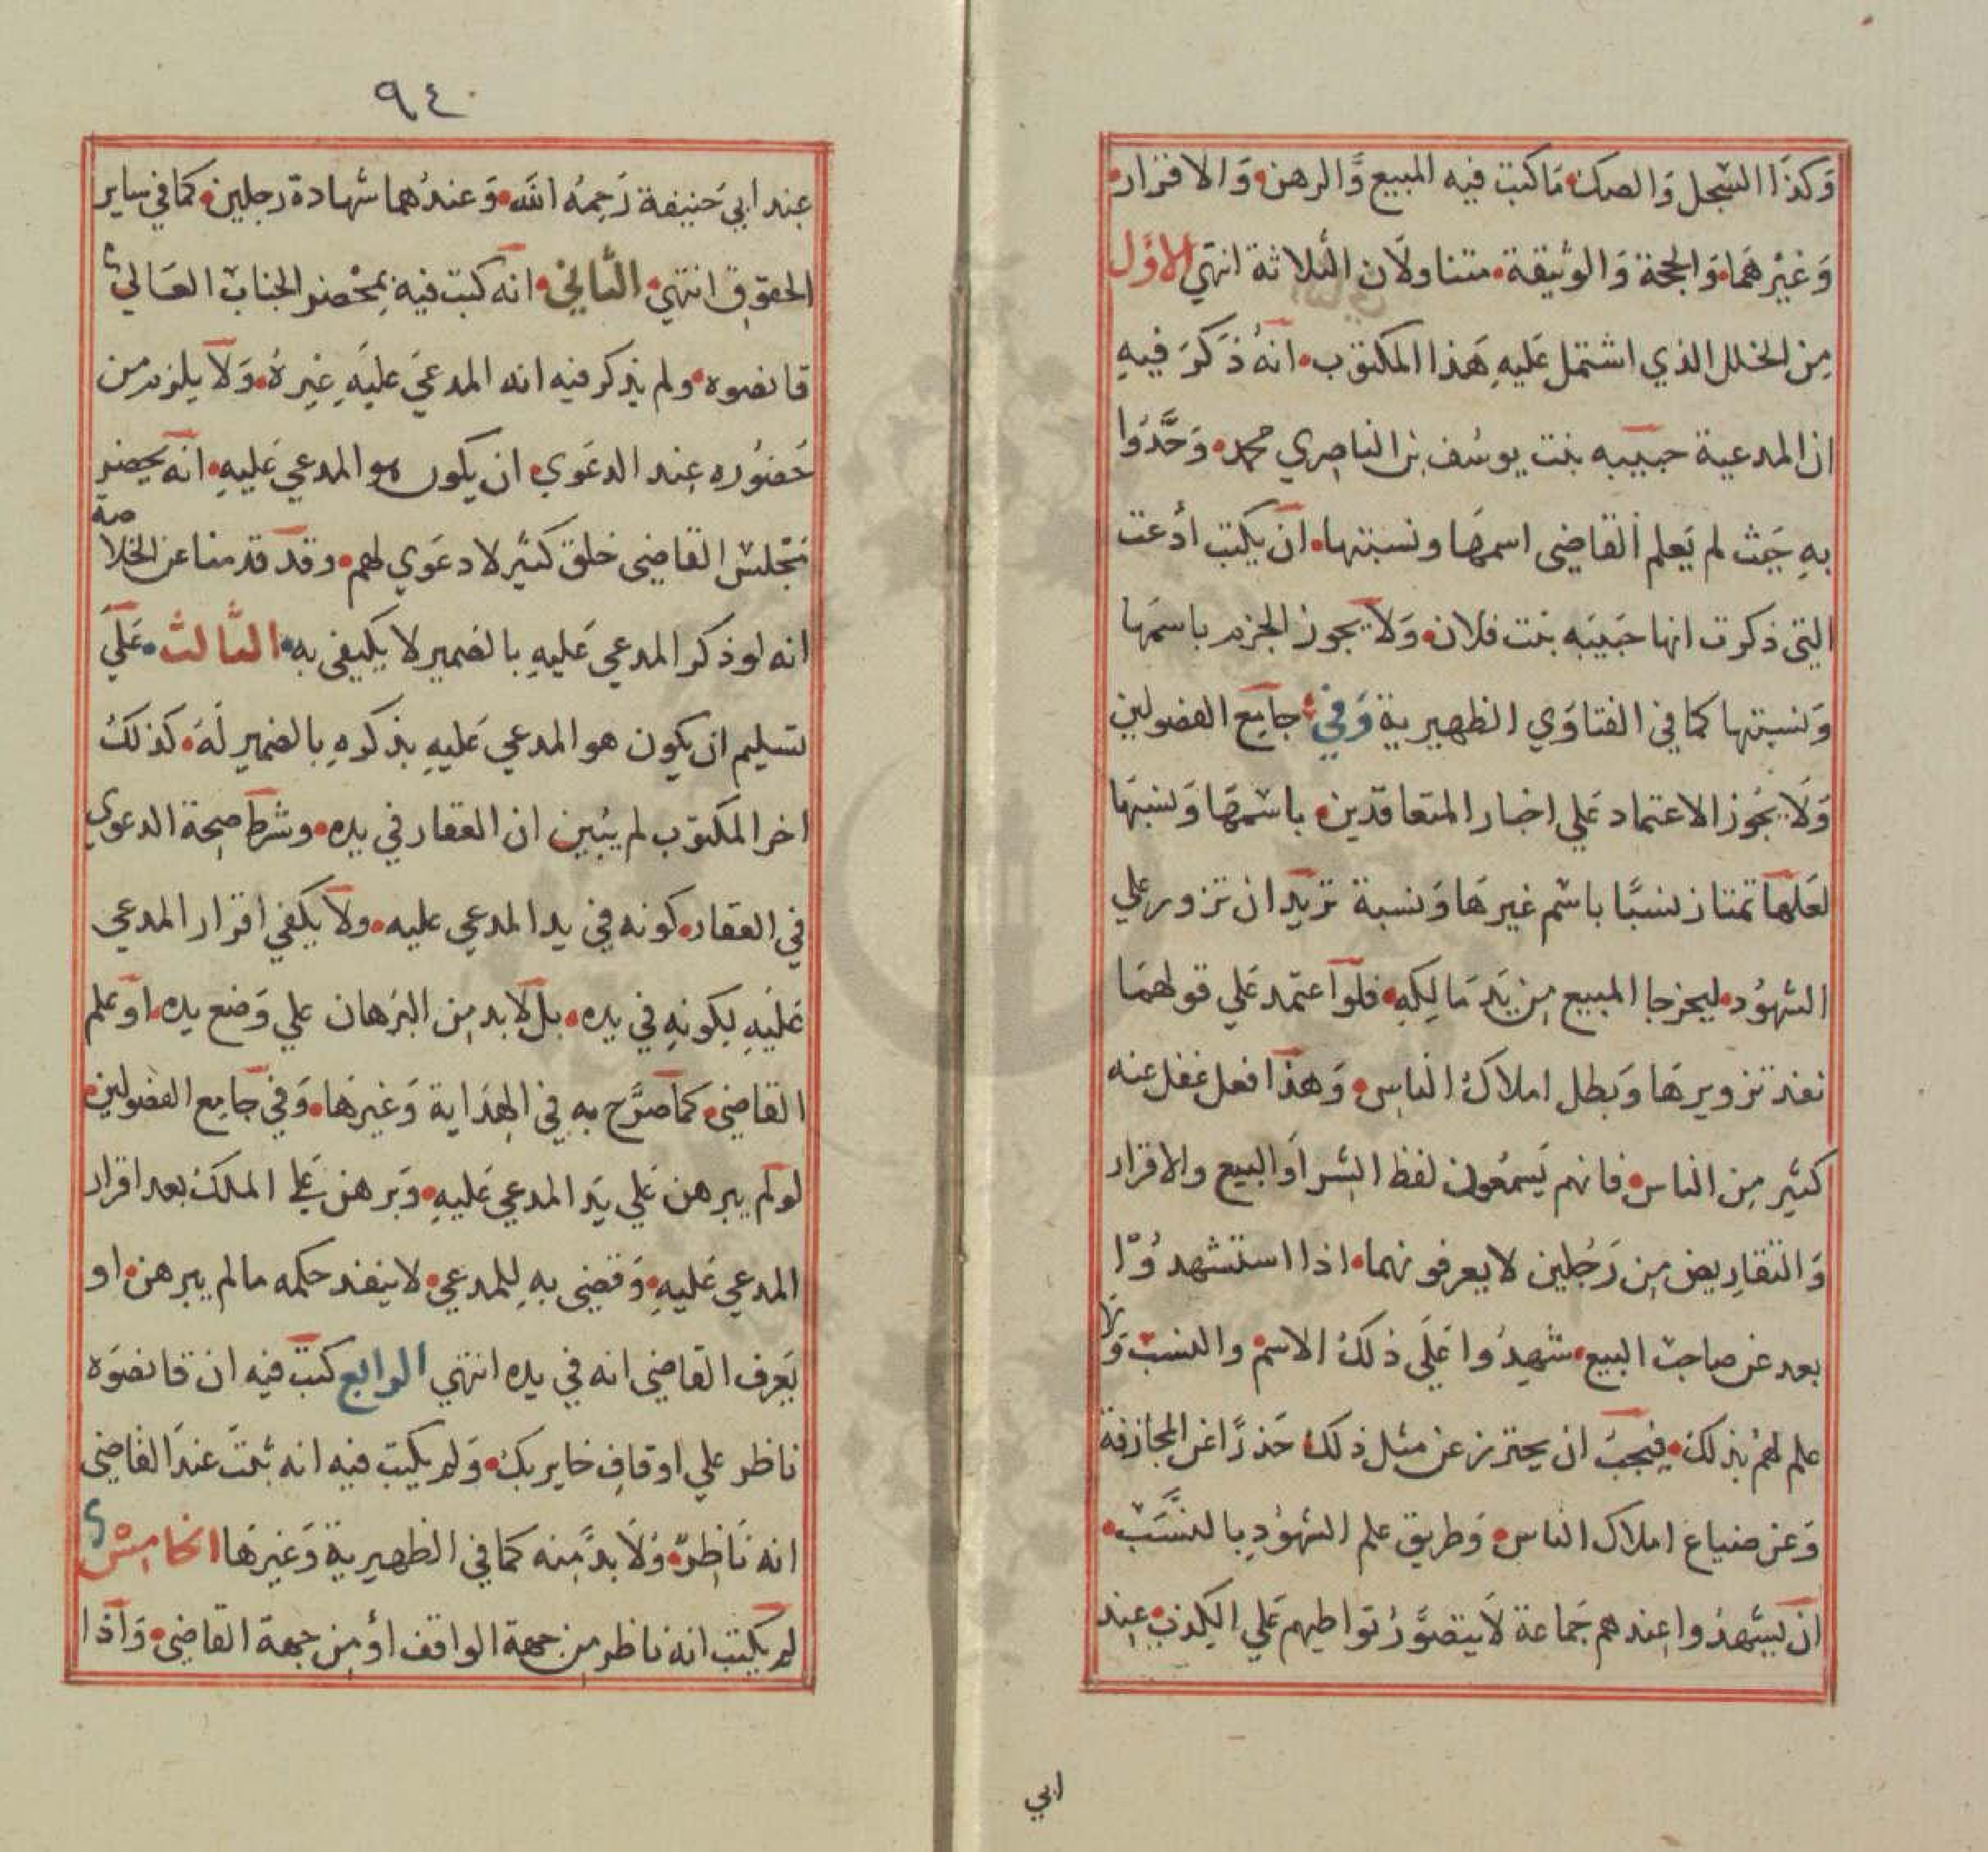 وكذا السجل والصك ما كتب فيه المبيع والرهن والاقرار
وغيرهما والحجة والوثيقة متناولان الثلاثة انتهي الاول
من الخلل الذي اشتمل عليه هذا المكتوب انه ذكر فيه
ان المدعية حبيبه بنت يوسف بن الناصري محمد وحدوا
به حيث لم يعلم القاضي اسمها ونسبتها ان يكتب أدعت
التي ذكرت انها حبيبه بنت فلان ولا يجوز الجزم باسمها
ونسبتها كما في الفتاوي الظهيرية وفي جامع الفصولين
ولا يجوز الاعتماد علي اخبار المتعاقدين باسمها ونسبها
لعلها تمتاز نسبا باسم غيرها ونسبة تريد ان تزور علي
الشهود ليخرجا المبيع من يد مالكه فلو اعتمد علي قولهما
نفذ تزويرها وبطل املاك الناس وهذا فعل غفل عنه
كثير من الناس فانهم يسمعون لفظ الشراو البيع والاقرار
والتقابض من رجلين لا يعرفونهما اذا استشهدوا
بعد عن صاحب البيع شهدوا علي ذلك الاسم والنسب ولا
علم لهم بذلك فيجب ان يحترز عن مثل ذلك حذرا عن المجازفة
وعن ضياع املاك الناس وطريق علم الشهود بالنسب
ان يشهدوا عندهم جماعة لا يتصور تواطيهم علي الكذب عند
ابي
٩٤
عند ابي حنيفة رحمه الله وعندهما شهادة رجلين كما في ساير
الحقوق انتهي الثاني انه كتب فيه بمحضر الجناب العالي
قانصوه ولم يذكر فيه انه المدعي عليه غيره ولا يلزم من
حضوره عند الدعوي ان يكون هو المدعي عليه انه يحضر
مجلس القاضي خلق كثير لا دعوي لهم وقد قدمنا عن الخلاصة
انه لو ذكر المدعي عليه بالضمير لا يكتفي به الثالث علي
تسليم ان يكون هو المدعي عليه بذكره بالضمير له كذلك
اخر المكتوب لم يبين ان العقار في يده وشرط صحة الدعوي
في العقار كونه في يد المدعي عليه ولا يكفي اقرار المدعي
عليه بكونه في يده بل لا بد من البرهان علي وضع يده او علم
القاضي كما صرح به في الهداية وغيرها وفي جامع الفصولين
لو لم يبرهن علي يد المدعي عليه وبرهن علي الملك بعد اقرار
المدعي عليه وقضي به للمدعي لا ينفذ حكمه مالم يبرهن او
يعرف القاضي انه في يده انتهي الرابع كتب فيه ان قانصوه
ناظر علي اوقاف خاير بك ولم يكتب فيه انه ثبت عند القاضي
انه ناظر ولا بد منه كما في الظهيرية وغيرها الخامس
لم يكتب انه ناظر من جهة الواقف أو من جهة القاضي واذا